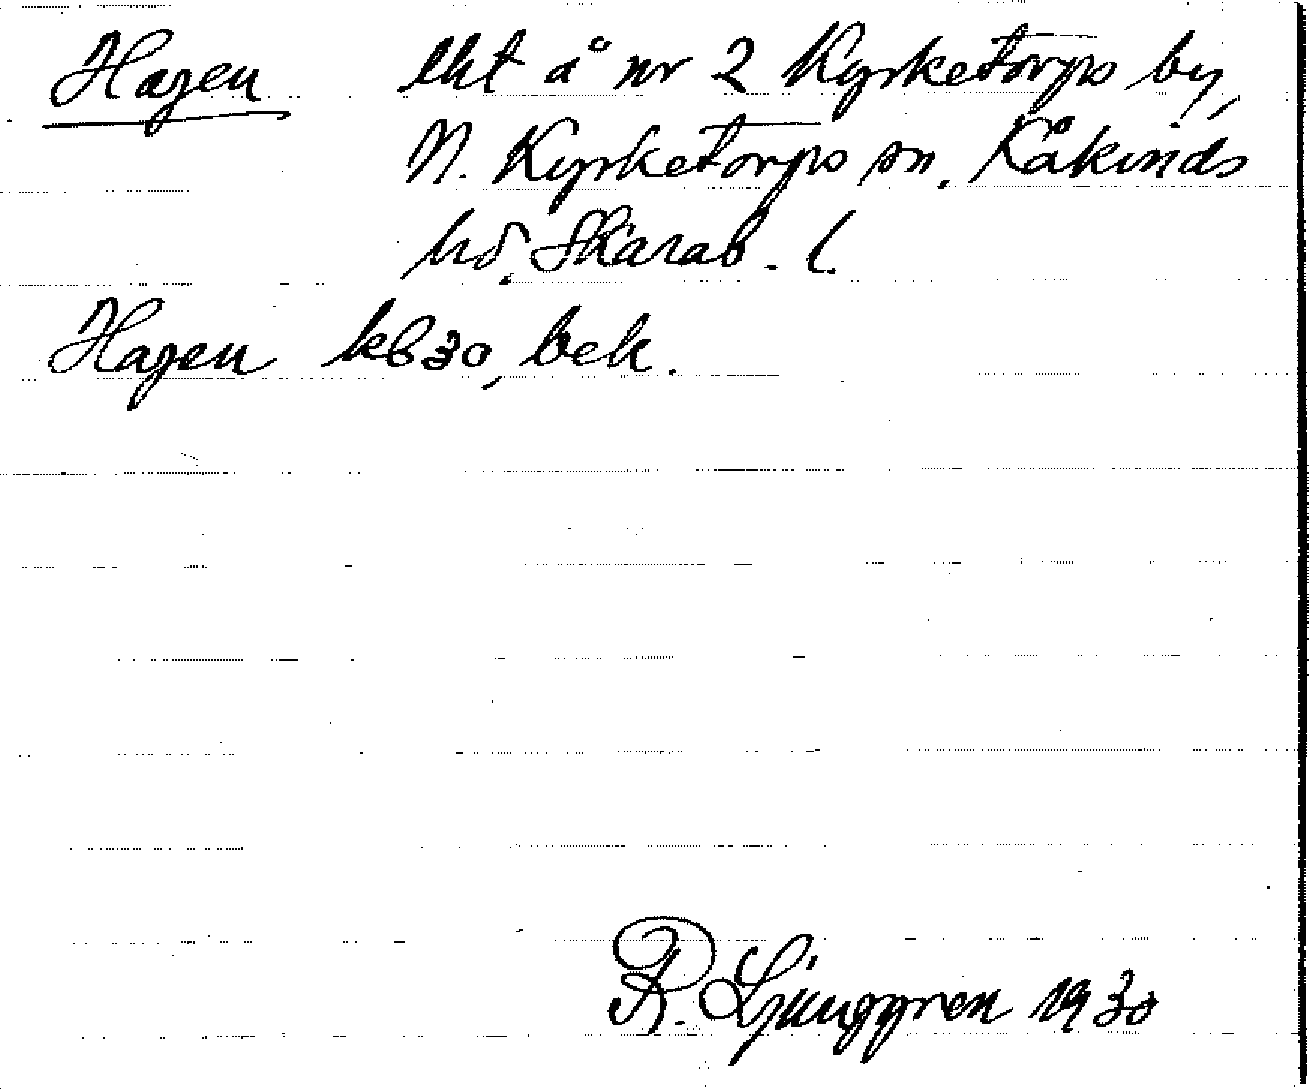 Hagen lht å nr 2 Kyrketorps by,
N. Kyrketorps sn. Kåkinds
hd. Skarab. l.
Hagen kb 30, bek.
R. Ljunggren 1930